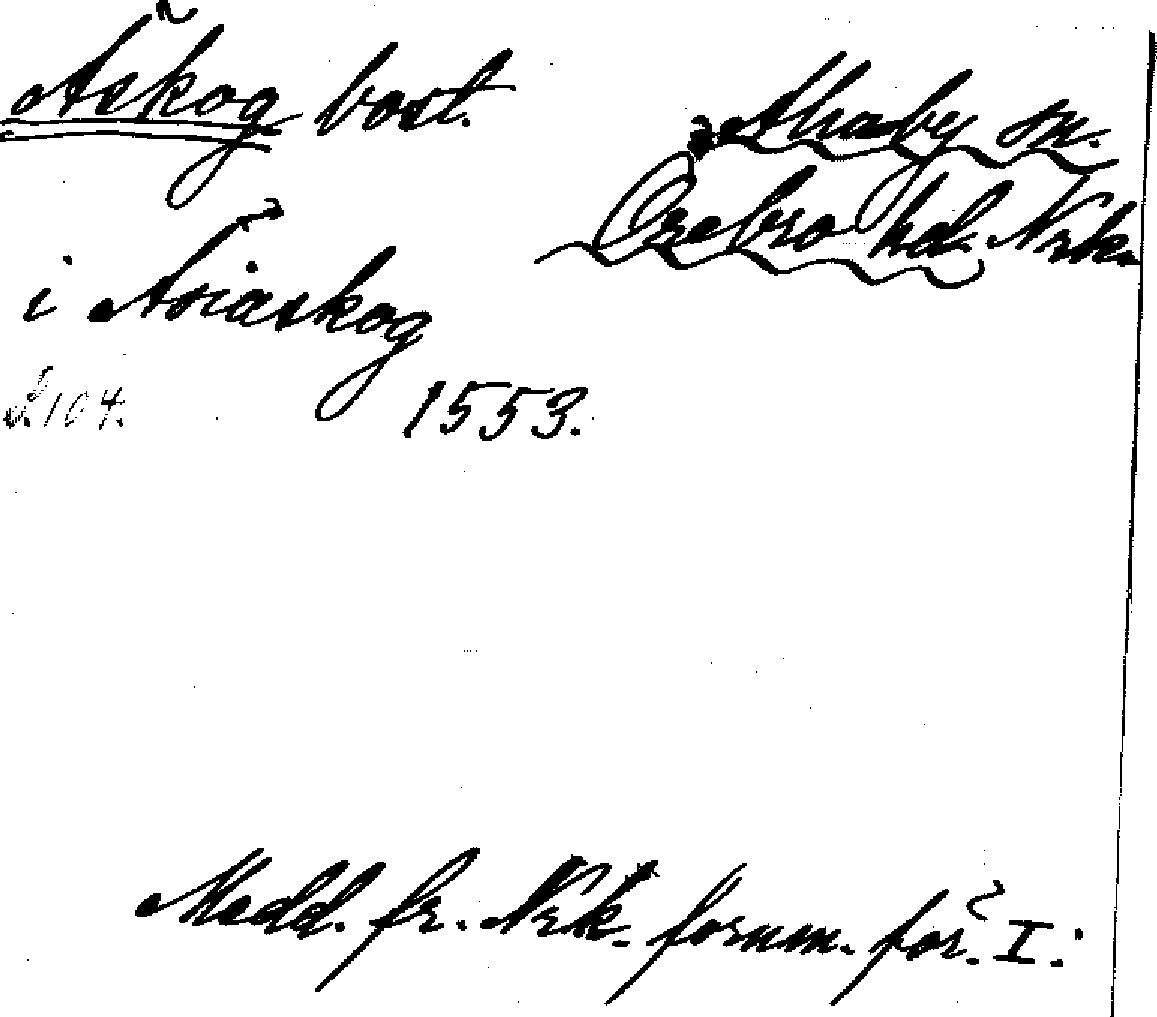 Åskog bost.
Ånsta sn.
Örebro hd. Nrk.
i Åsiaskog
S. 104. 1553.
Medd. fr. Nrk. fornm. för. I: